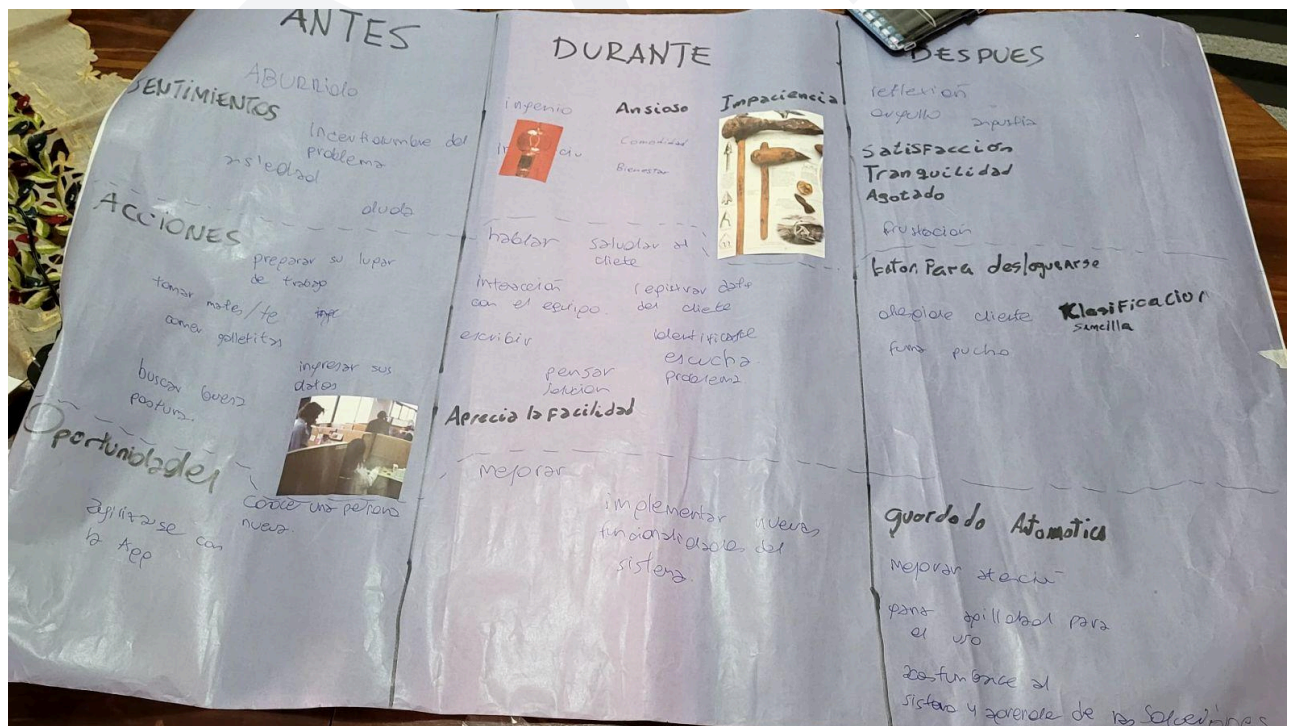 ANTES
ABURRIDO
SENTIMIENTOS
Incertidumbre del
problema
ansiedad
duda
ACCIONES
preparar su lugar
de trabajo
tomar mates/te
comer galletitas
ingresar sus
datos
buscar buena
postura.
Oportunidades
agilizarse con
la App
conoce una persona
nueva.
DURANTE
ingenio
Ansioso
Impaciencia
Comodidad
Bienestar
hablar
saludar al
cliete
interacción
con el equipo.
registrar dato
del cliete
escribir
identificarse
escucha
problema
pensar
solucion
Aprecia la Facilidad
mejorar
implementar nuevas
funcionalidades del
sistema.
DESPUES
reflexion
orgullo angustia
Satisfacción
Tranquilidad
Agotado
frustacion
boton Para desloguearse
despide cliente
Klasificacion
sencilla
fumar pucho
guardado Atomatico
mejorar atención
gana agilidad para
el uso
sistema y aprende de